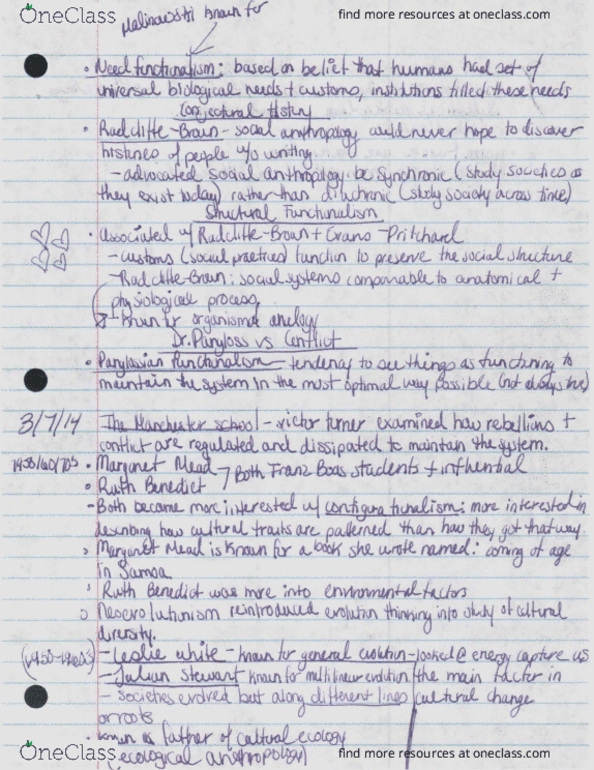 OneClass
find more resources at oneclass.com
Malinowski known for
• Need functionalism: based on belief that humans had set of
universal biological needs + customs, institutions filled these needs
Conjectural History
• Radcliffe-Brown - social anthropology could never hope to discover
histories of people w/o writing
- advocated social anthropology be synchronic (study societies as
they exist today) rather than diachronic (study society across time)
Structural Functionalism
• associated w/ Radcliffe-Brown + Evans-Pritchard
- customs (social practices) function to preserve the social structure
- Radcliffe-Brown: social systems comparable to anatomical +
physiological process
known for organismal analogy
Dr. Pangloss vs Conflict
• Panglossian functionalism - tendency to see things as functioning to
maintain the system in the most optimal way possible (not always true)
3/7/14 - The Manchester school - victor turner examined how rebellions +
conflict are regulated and dissipated to maintain the system.
• Margaret Mead 7 Both Franz Boas students + influential
• Ruth Benedict
- Both became more interested w/ configurationalism: more interested in
describing how cultural traits are patterned than how they got that way.
• Margaret Mead is known for a book she wrote named: coming of age
in Samoa
• Ruth Benedict was more into environmental factors
• Neoevolutionism reintroduced evolution thinking into study of cultural
diversity.
- Leslie White - known for general evolution - looked @ energy capture as
- Julian Stewart - known for multilinear evolution the main factor in
- societies evolved but along different lines cultural change
or roots
• known as father of cultural ecology
(ecological anthropology)
OneClass
find more resources at oneclass.com